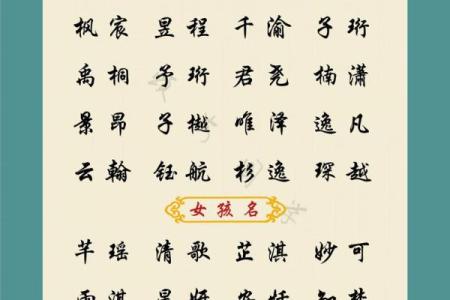 枫宸 昱程 千渝 子珩
禹桐 予珩 君尧 楠潇
景昂 子樾 唯泽 逸凡
云翰 钰航 杉逸 琛越
女孩名
芊瑶 清歌 芷淇 妙可